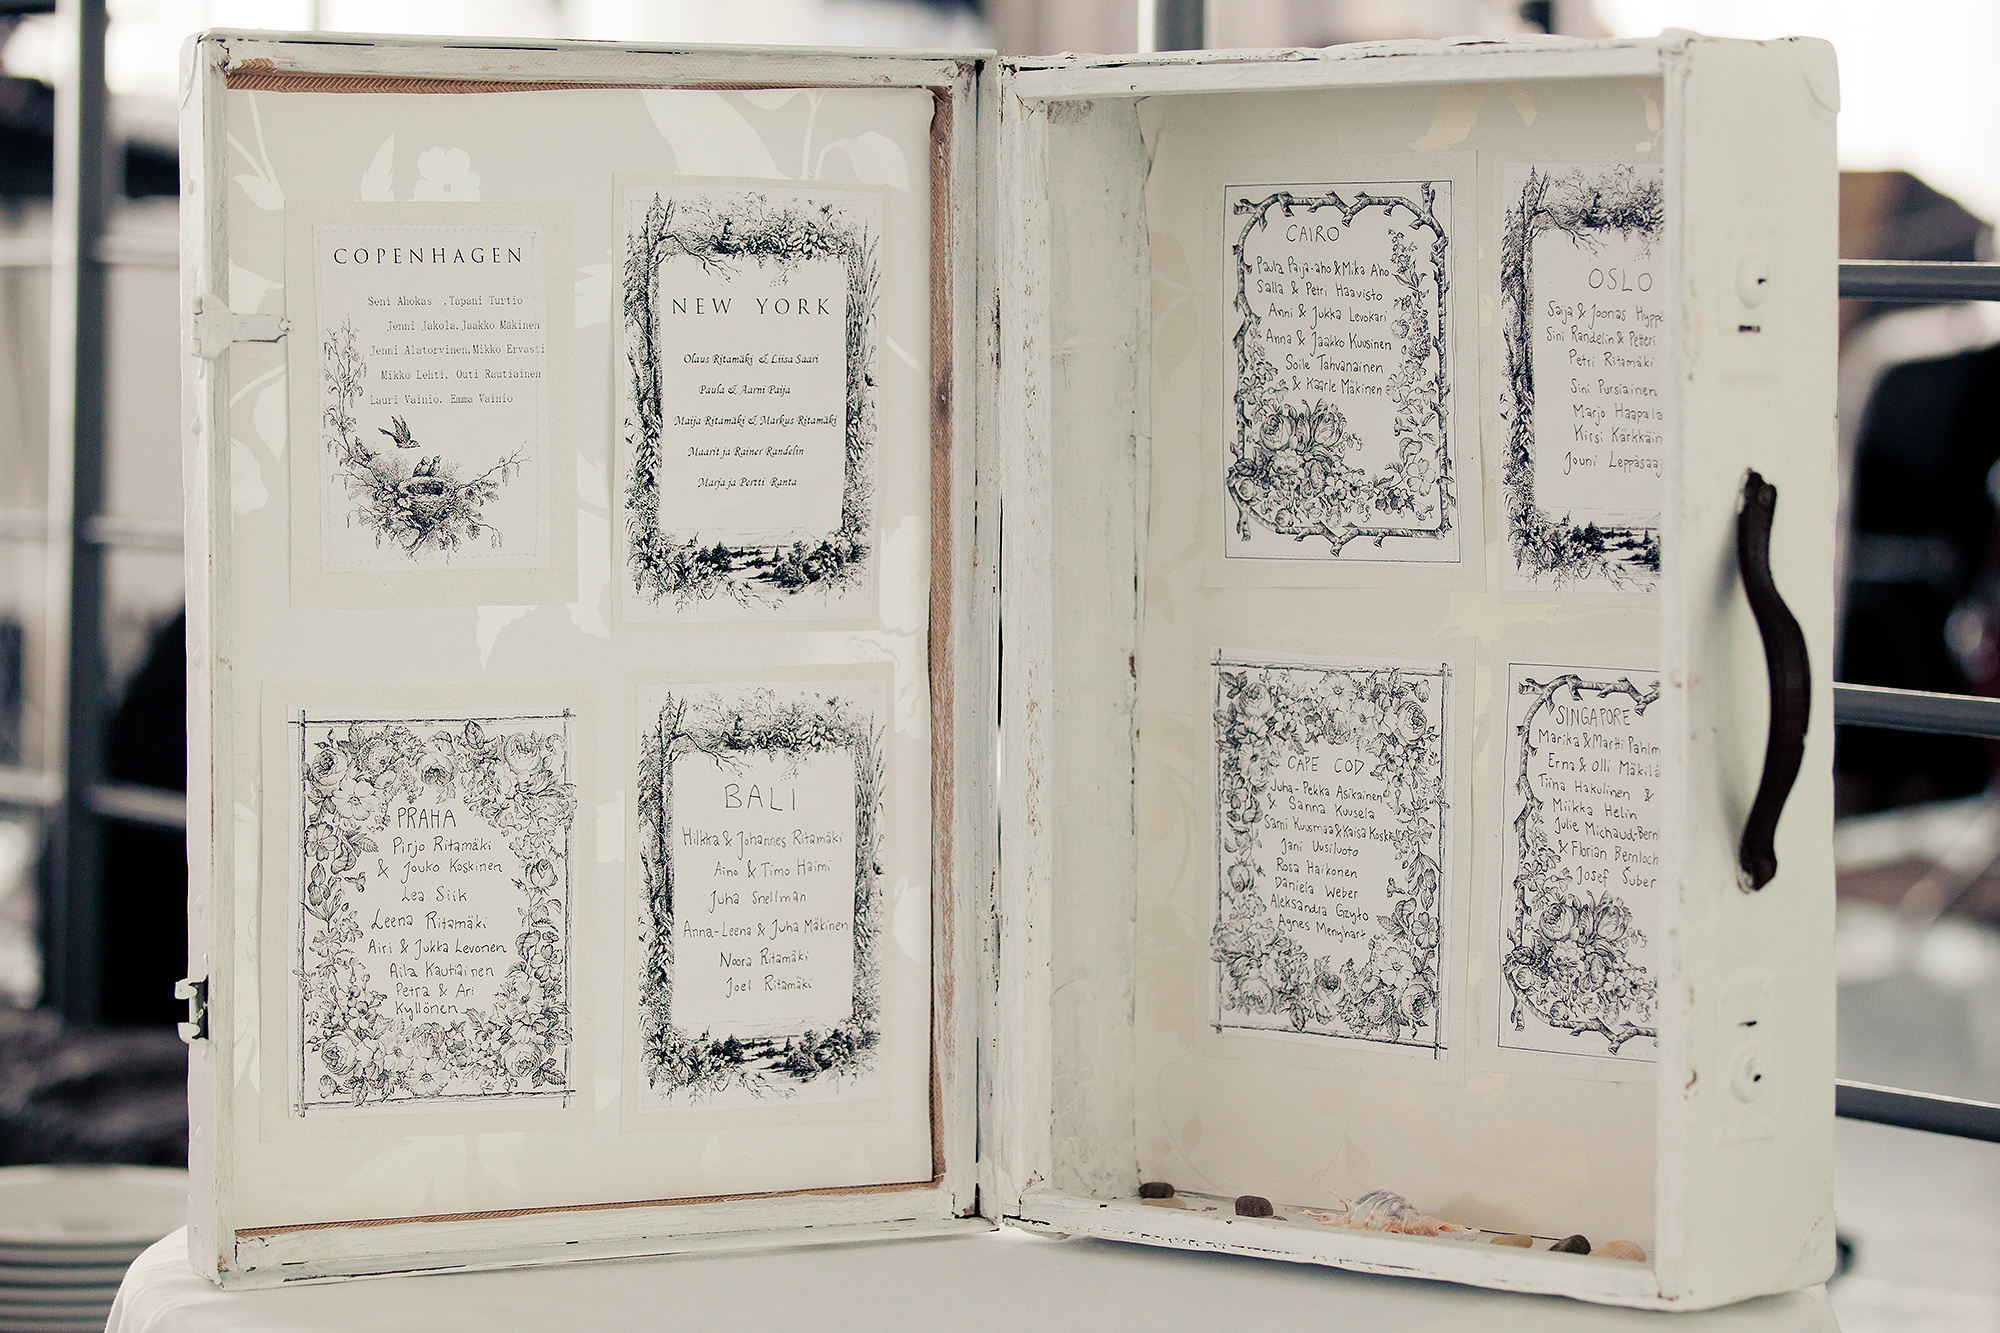 COPENHAGEN
Seni Ahokas ,Tapani Turtio
Jenni Jakola,Jaakko Mäkinen
Jenni Alatorvinen,Mikko Ervasti
Mikko Lehti, Outi Rautiainen
Lauri Vainio, Emma Vainio
NEW YORK
Olaus Ritamäki & Liisa Saari
Paula & Aarni Paija
Maija Ritamäki & Markus Ritamäki
Maarit ja Rainer Randelin
Marja ja Pertti Ranta
PRAHA
Pirjo Ritamäki
& Jouko Koskinen
Lea Siik
Leena Ritamäki
Airi & Jukka Levonen
Aila Kautiainen
Petra & Ari
Kyllönen
BALI
Hilkka & Johannes Ritamäki
Aino & Timo Haimi
Juha Snellman
Anna-Leena & Juha Mäkinen
Noora Ritamäki
Joel Ritamäki
CAIRO
Paula Paija-aho & Mika Aho
Salla & Petri Haavisto
Anni & Jukka Levokari
Anna & Jaakko Kuusinen
Soile Tahvanainen
& Kaarle Mäkinen
OSLO
Saija & Joonas Hyppö
Sini Randelin & Petteri
Petri Ritamäki
Sini Pursiainen
Marjo Haapala
Kirsi Kärkkäin
Jouni Leppäsaaj
CAPE COD
Juha-Pekka Asikainen
& Sanna Kuusela
Sami Kuusmaa & Kaisa Koske
Jani Uusiluoto
Rosa Haikonen
Daniela Weber
Aleksandra Gzyło
Agnes Menyhart
SINGAPORE
Marika & Martti Pahlm
Erna & Olli Mäkilä
Tiina Hakulinen &
Miikka Helin
Julie Michaud-Bern
& Florian Bernloch
Josef Suber